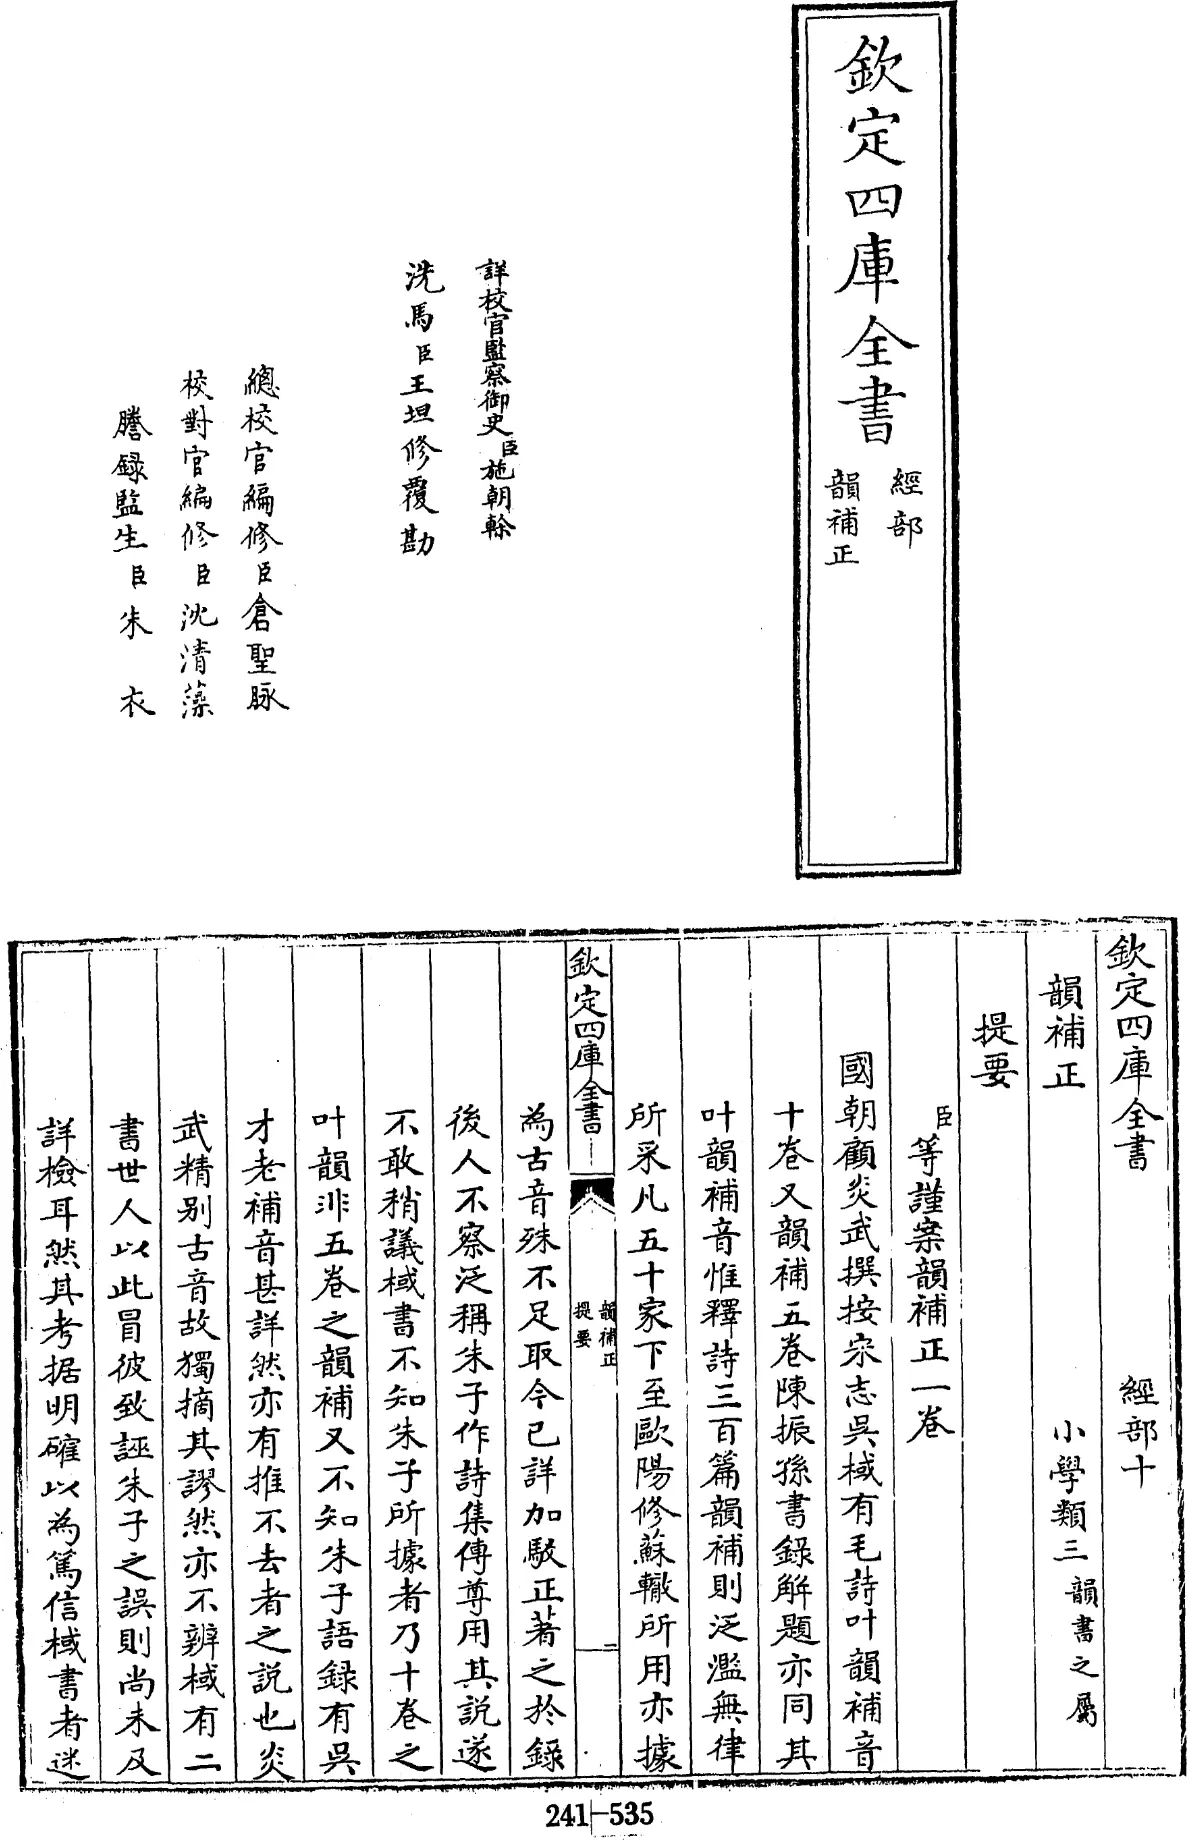 欽定四庫全書
經部
韻補正
詳校官監察御史臣施朝榦
洗馬臣王坦修覆勘
總校官編修臣倉聖脉
校對官編修臣沈清藻
謄録監生臣朱衣
欽定四庫全書 經部十
韻補正 小學類三韻書之屬
提要
臣等謹案韻補正一卷
國朝顧炎武撰按宋志吳棫有毛詩叶韻補音
十卷又韻補五卷陳振孫書錄解題亦同其
叶韻補音惟釋詩三百篇韻補則泛濫無律
所采凡五十家下至歐陽修蘇轍所用亦據
欽定四庫全書
韻補正
提要
二
為古音殊不足取今已詳加駁正著之於錄
後人不察泛稱朱子作詩集傳尊用其説遂
不敢稍議棫書不知朱子所據者乃十卷之
叶韻非五卷之韻補又不知朱子語録有吳
才老補音甚詳然亦有推不去者之説也炎
武精别古音故獨摘其謬然亦不辨棫有二
書世人以此冒彼致誣朱子之誤則尚未及
詳檢耳然其考据明確以為篤信棫書者迷
241-535